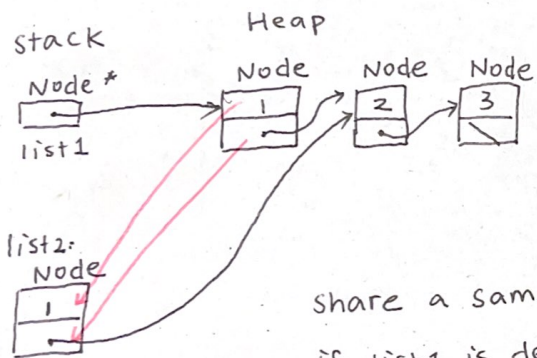 stack
Heap
Node*
list1
Node
1
Node
2
Node
3
list2:
Node
1
share a sam